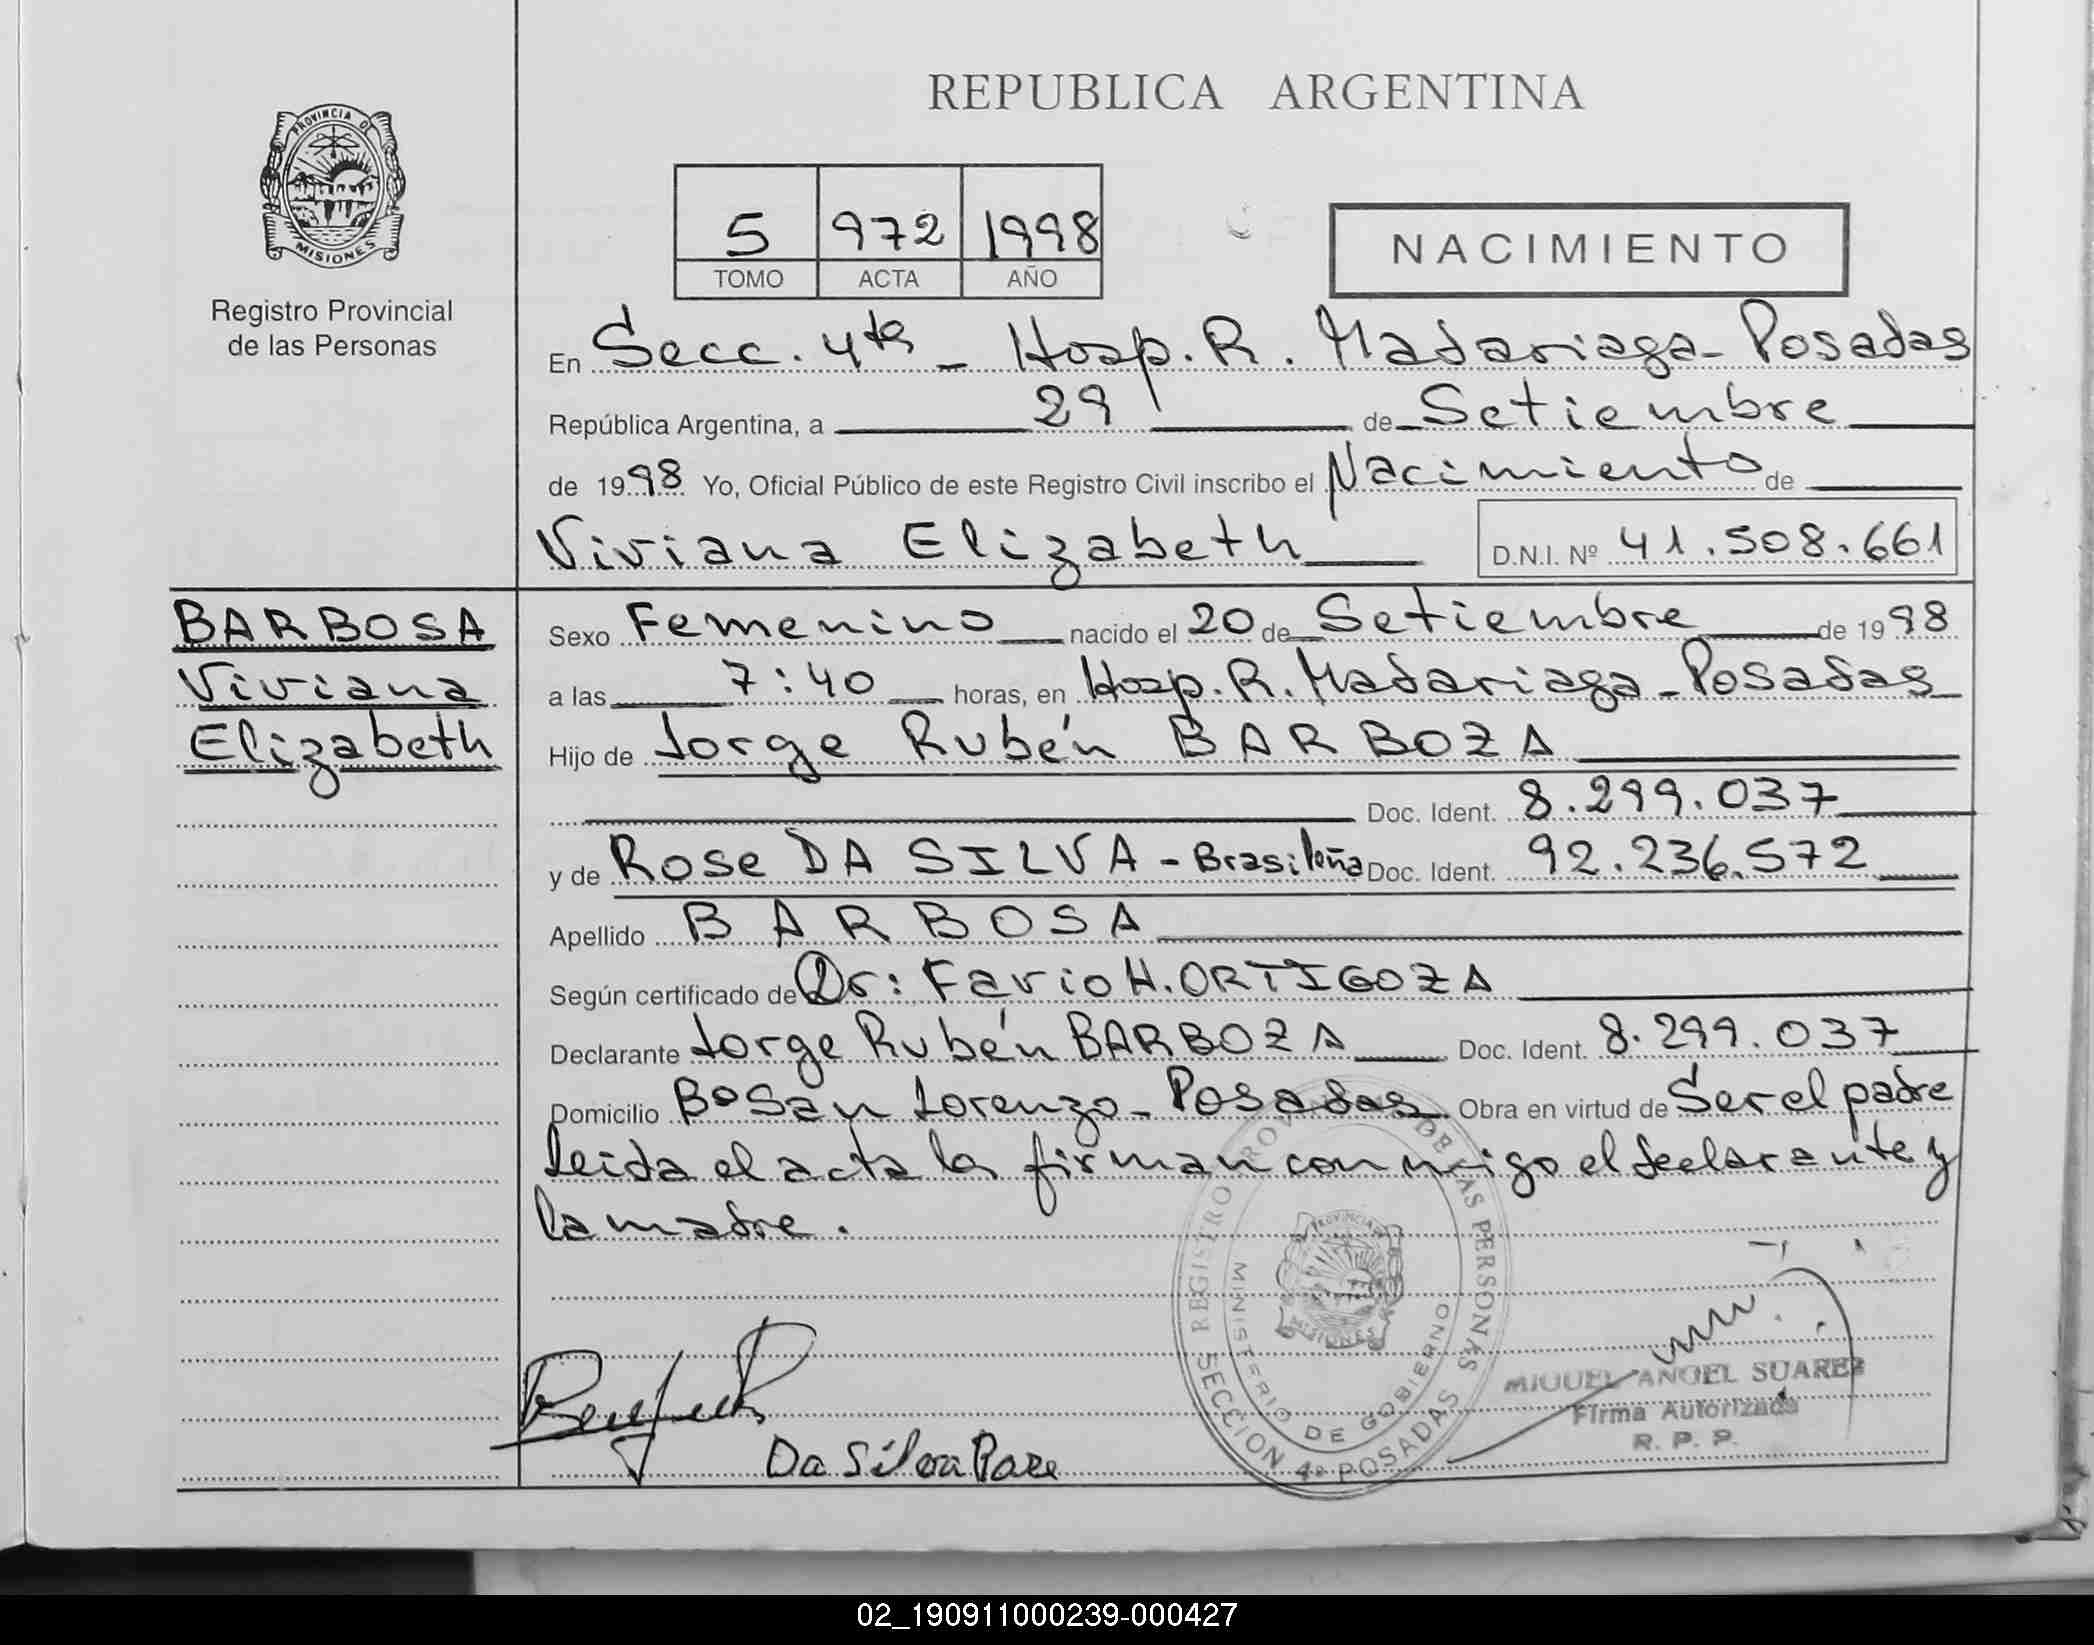 REPUBLICA ARGENTINA
PROVINCIA DE
MISIONES
Registro Provincial
de las Personas
5 972 1998
TOMO ACTA AÑO
NACIMIENTO
En Secc. 4ta - Hosp. R. Madariaga - Posadas
República Argentina, a 29 de Setiembre
de 1998 Yo, Oficial Público de este Registro Civil inscribo el Nacimiento de
Viviana Elizabeth D.N.I. Nº 41.508.661
BARBOSA
Viviana
Elizabeth
Sexo Femenino nacido el 20 de Setiembre de 1998
a las 7:40 horas, en Hosp. R. Madariaga - Posadas
Hijo de Jorge Rubén BARBOZA
Doc. Ident. 8.299.037
y de Rose DA SILVA - Brasileña Doc. Ident. 92.236.572
Apellido BARBOSA
Según certificado de Dr: Favio H. ORTIGOZA
Declarante Jorge Rubén BARBOZA Doc. Ident. 8.299.037
Domicilio Bº San Lorenzo - Posadas Obra en virtud de Ser el padre
Leida el acta la firman conmigo el declarante y
la madre.
REGISTRO PROVINCIAL DE LAS PERSONAS
SECCION 4º POSADAS
MINISTERIO DE GOBIERNO
PROVINCIA
MISIONES
MIGUEL ANGEL SUAREZ
Firma Autorizada
R. P. P.
Da Silva Rose
02_190911000239-000427